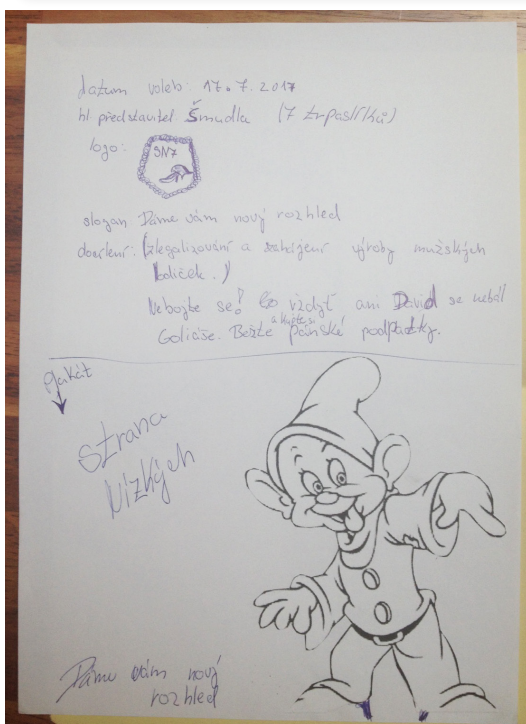 datum voleb: 17.7.2017
hl. představitel Šmudla (7 trpaslíků)
logo:
SN7
slogan Dáme vám nový rozhled
doučlení: (zlegalizování a zahájení výroby mužských
lodiček.)
Nebojte se! vždyť ani David se nebál
Goliáše. Bežte a kupte si pánské podpatky.
plakát
Strana
Nízkých
Dáme vám nový
rozhled